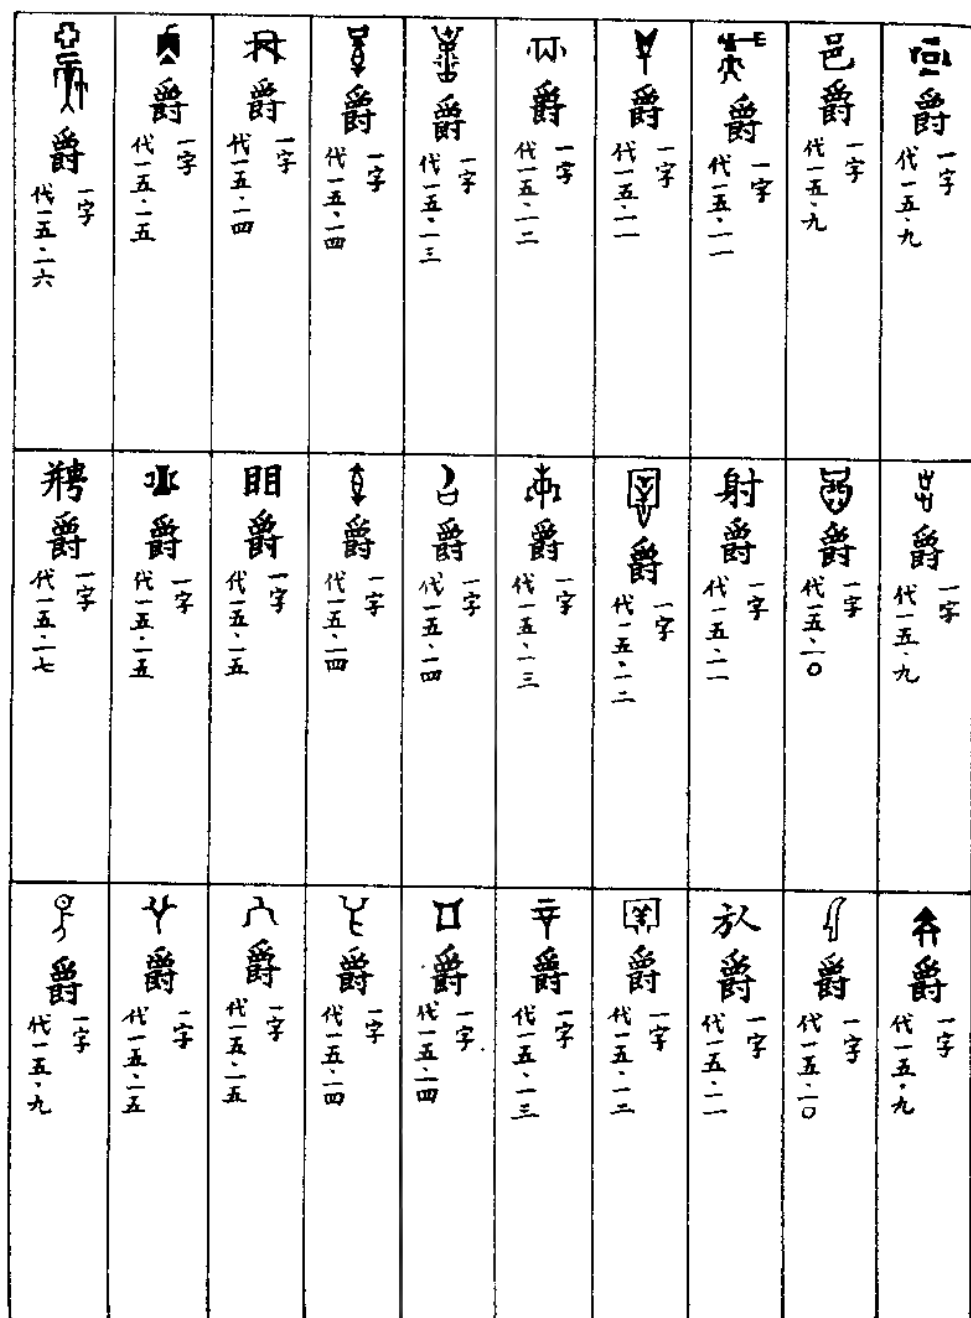 爵
一字
代一五·九
邑爵
一字
代一五·九
爵
一字
代一五·一一
爵
一字
代一五·一一
爵
一字
代一五·一二
爵
一字
代一五·一三
爵
一字
代一五·一四
爵
一字
代一五·一四
爵
一字
代一五·一五
爵
一字
代一五·一六
爵
一字
代一五·九
爵
一字
代一五·一〇
射爵
一字
代一五·一一
爵
一字
代一五·一二
爵
一字
代一五·一三
爵
一字
代一五·一四
爵
一字
代一五·一四
眀爵
一字
代一五·一五
爵
一字
代一五·一五
爵
一字
代一五·一七
爵
一字
代一五·九
爵
一字
代一五·一〇
㫃爵
一字
代一五·一一
爵
一字
代一五·一二
爵
一字
代一五·一三
爵
一字
代一五·一四
爵
一字
代一五·一四
爵
一字
代一五·一五
爵
一字
代一五·一五
爵
一字
代一五·九